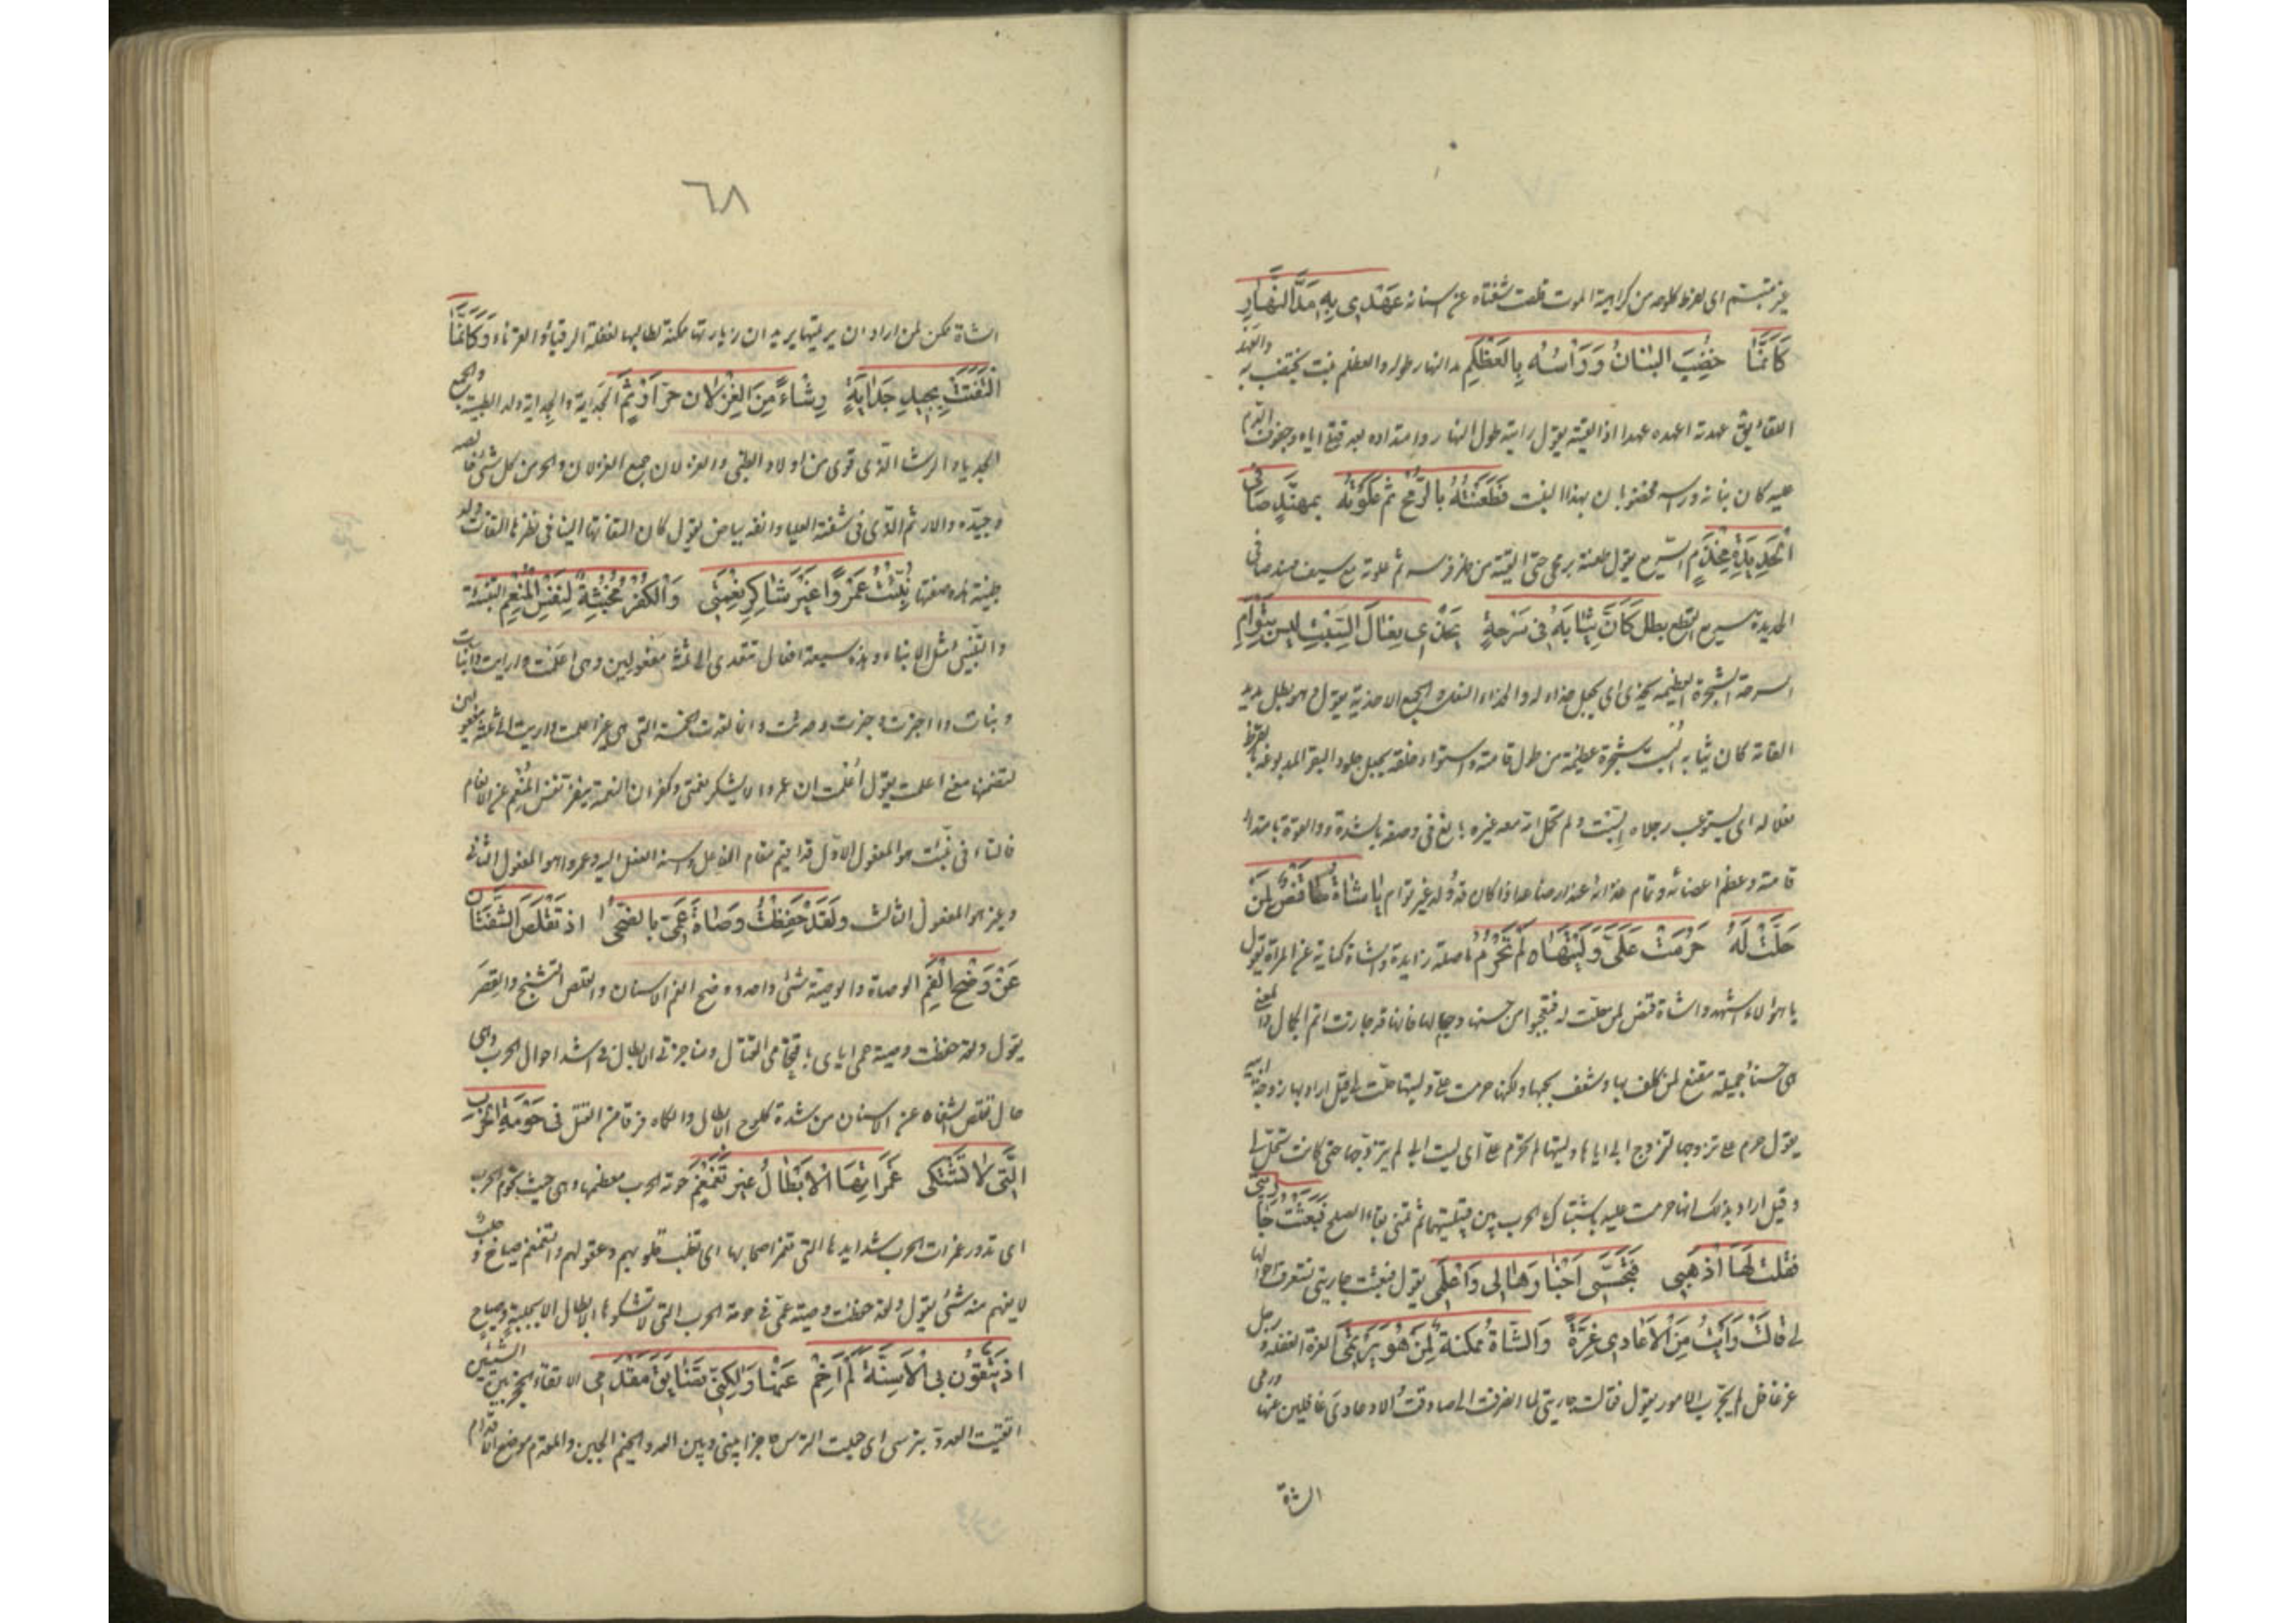 غير تبسم اي لفرط كلوحه من كراهية الموت قلصت شفتاه عن اسنانه عَهْدِي بِهِ مَدَّ النَّهَارِ
كَأَنَّمَا خُضِبَ البَنَانُ وَرَأْسُهُ بِالعَظْلِمِ مد النهار طوله والعظلم نبت يختضب به والعهد
اللقاء يق عهدته اعهده عهدا اذا لقيته يقول رايته طول النهار وامتداده بعد قتلي اياه وجفوف الدم
عليه كان بنانه وراسه مخضوبان بهذا النبت فَطَعَنْتُهُ بِالرُّمْحِ ثُمَّ عَلَوْتُهُ بِمُهَنَّدٍ صَافِي
الحَدِيدَةِ مِخْذَمِ السريع يقول طعنته برمحي حتى القيته من ظهر فرسه ثم علوته مع سيف مهند صافي
الحديدة سريع القطع بطل كَأَنَّ ثِيَابَهُ فِي سَرْحَةٍ يُحْذَى نِعَالَ السِّبْتِ لَيْسَ بِتَوْأَمِ
السرحة الشجرة العظيمة يحذى اي يجعل حذاء له والحذاء النعل والجمع الاحذية يقول وهو بطل مديد
القامة كان ثيابه البست شجرة عظيمة من طول قامته واستواء خلقه يجعل جلود البقر المدبوغة بالقرظ
نعلا له اي يستوعب رجلاه السبت ولم تحمل امه معه غيره بالغ في وصفه بالشدة والقوة بامتداد
قامته وعظم اعضائه وتمام غذائه عند ارضاعه اذا كان فذا ولد غير توام يَا شَاةَ مَا قَنَصٍ لِمَنْ
حَلَّتْ لَهُ حَرُمَتْ عَلَيَّ وَلَيْتَهَا لَمْ تَحْرُمِ ما صلة زايدة والشاة كناية عن المراة يقول
يا هؤلاء اشهدوا شاة قنص لمن حلت له فتعجبوا من حسنها وجمالها فانها قد حازت اتم الجمال والمعنى
هي حسناء جميلة مقنع لمن كلف بها وشغف بحبها ولكنها حرمت علي وليتها حلت لي قيل اراد بها زوجة ابيه
يقول حرم علي تزوجها لتزوج ابي اياها وليتها لم تحرم علي اي ليت ابي لم يتزوجها حتى كانت تحل لي
وقيل اراد بذلك انها حرمت عليه باشتباك الحرب بين قبيلتيهما ثم تمنى بقاء الصلح فَبَعَثْتُ جَارِيَتِي
فَقُلْتُ لَهَا اذْهَبِي فَتَجَسَّسِي أَخْبَارَهَا لِي وَاعْلَمِي يقول فبعثت جاريتي لتتعرف احوالها
لي قَالَتْ رَأَيْتُ مِنَ الأَعَادِي غِرَّةً وَالشَّاةُ مُمْكِنَةٌ لِمَنْ هُوَ مُرْتَمِي الغرة الغفلة رجل
غر غافل لم يجرب الامور يقول فقالت جاريتي لما انصرفت الي صادفت الاعادي غافلين عنها ورمي
الشاة
٦٨
الشاة ممكن لمن اراد ان يرتميها يريد ان زيارتها ممكنة لطالبها لغفلة الرقباء والقرناء وَكَأَنَّمَا
الْتَفَتَتْ بِجِيدِ جَدَايَةٍ رِشَاءٍ مِنَ الغِزْلَانِ حُرٍّ أَرْثَمِ الجداية والجداية ولد الظبية والجمع
الجدايا والرشا الذي قوي من اولاد الظبي والغزلان جمع الغزال والحر من كل شئ خالصه
وجيده والارثم الذي في شفته العليا وانفه بياض يقول كان التفاتها الينا في نظرها التفات ولد
ظبية هذه صفتها نُبِّئْتُ عَمْرًوا غَيْرَ شَاكِرِ نِعْمَتِي وَالْكُفْرُ مُخْبِثَةٌ لِنَفْسِ الْمُنْعِمِ التنبئة
والتنبئ مثل الانباء وهذه سبعة افعال تتعدى الى ثلثة مفعولين وهي اعلمت واريت وانبات
ونبات واخبرت وخبرت وحدثت وانما تعدت الخمسة التي هي غير اعلمت واريت الى ثلثة مفعولين
لتضمنها معنى اعلمت يقول اعلمت ان عمروا لا يشكر نعمتي وكفران النعمة ينفر نفس المنعم عن الانعام
فالتاء في نبئت هو المفعول الاول قد اقيم مقام الفاعل واسند الفعل اليه وعمروا هو المفعول الثاني
وغير هو المفعول الثالث وَلَقَدْ حَفِظْتُ وَصَاةَ عَمِّي بِالضُّحَى اذ تَقْلِصُ الشَّفَتَانِ
عَنْ وَضَحِ الْفَمِ الوصاة والوصية شئ واحد ووضح الفم الاسنان والقلص التشنج والقصر
يقول ولقد حفظت وصية عمي اياي باقتحامي القتال ومناجزتي الابطال في اشد احوال الحرب وهي
حال تقلص الشفاه عن الاسنان من شدة كلوح الابطال والكماه فرقا من القتل في حَوْمَةِ الْحَرْبِ
الَّتِي لَا تَشْتَكِي غَمَرَاتِهَا الْأَبْطَالُ غَيْرَ تَغَمْغُمِ حومة الحرب معظمها وهي حيث تحوم الحرب
اي تدور غمرات الحرب شدايدها التي تغمر اصحابها اي تغلب قلوبهم وعقولهم والتغمغم صياح وجلبة
لا يفهم منه شئ يقول ولقد حفظت وصية عمي في حومة الحرب التي لا تشكوها الابطال الا بجلبة وصياح
اذ يَتَّقُونَ بِيَ الْأَسِنَّةَ لَمْ أَخِمْ عَنْهَا وَلَكِنِّي تَضَايَقَ مَقْدَمِي الاتقاء الحجز بين الشيئين
اتقيت العدو بترسي اي جعلت الترس حاجزا بيني وبين العدو الخيم الجبن والمقدم موضع الاقدام